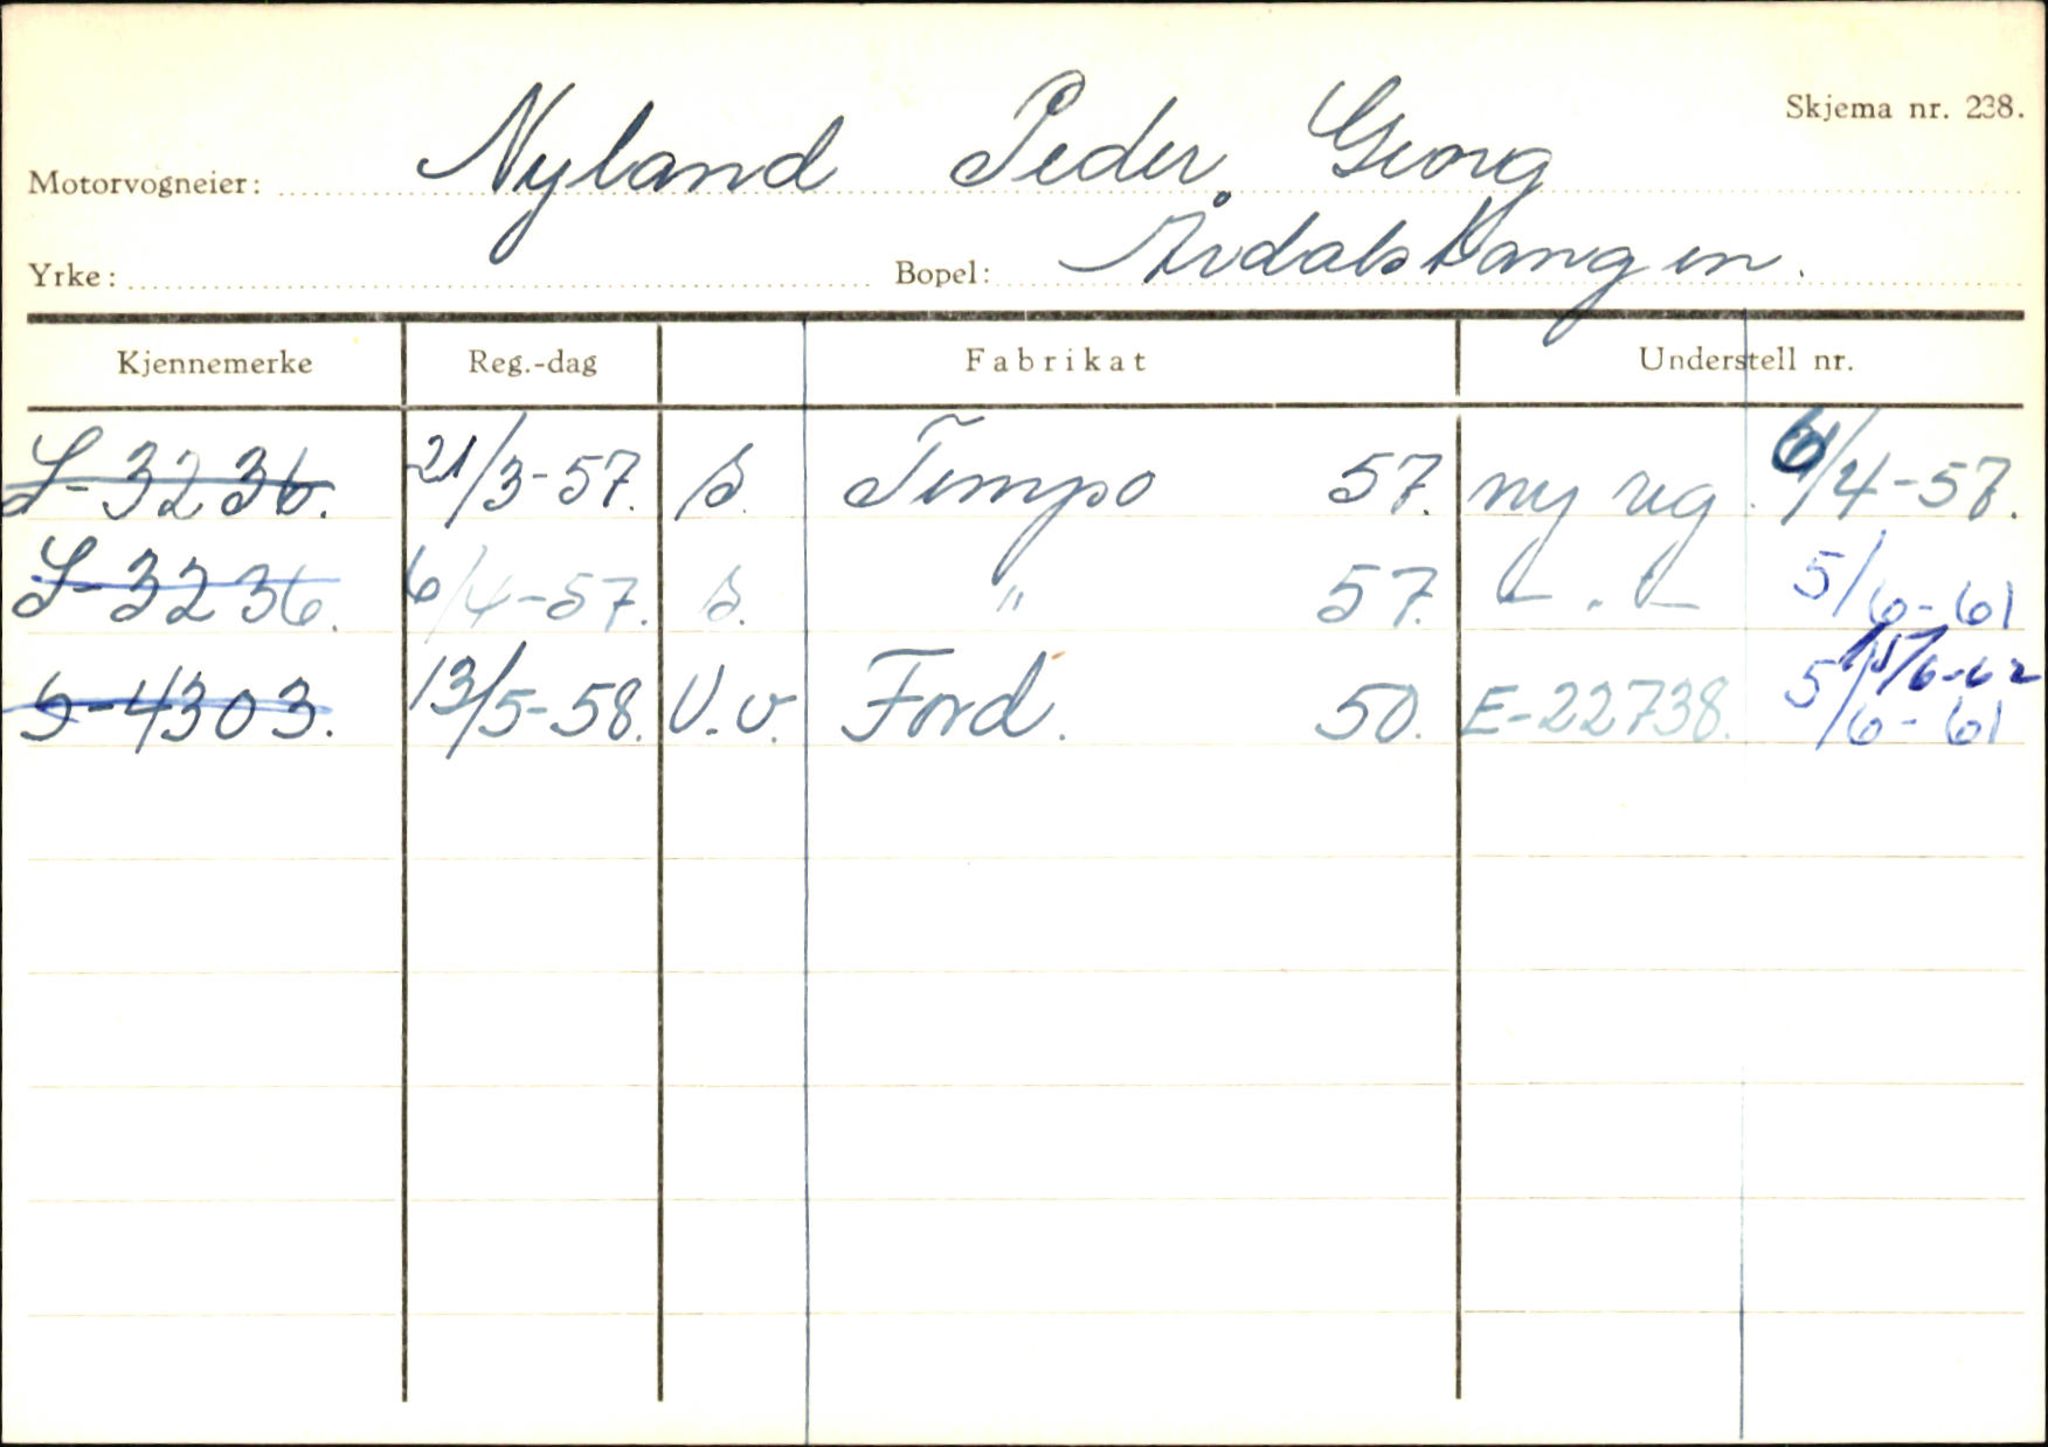 Skjema nr. 238.
Motorvogneier: Nyland Peder Georg
Yrke: Bopel: Årdalstangen.
Kjennemerke Reg.-dag Fabrikat Understell nr.
S-3236. 21/3-57. s. Tempo 57. ny reg. 6/4-57.
S-3236. 6/4-57. s. " 57. — . — 5/6-61
15/6-62
S-4303. 13/5-58. V.v. Ford. 50. E-22738. 5/6-61